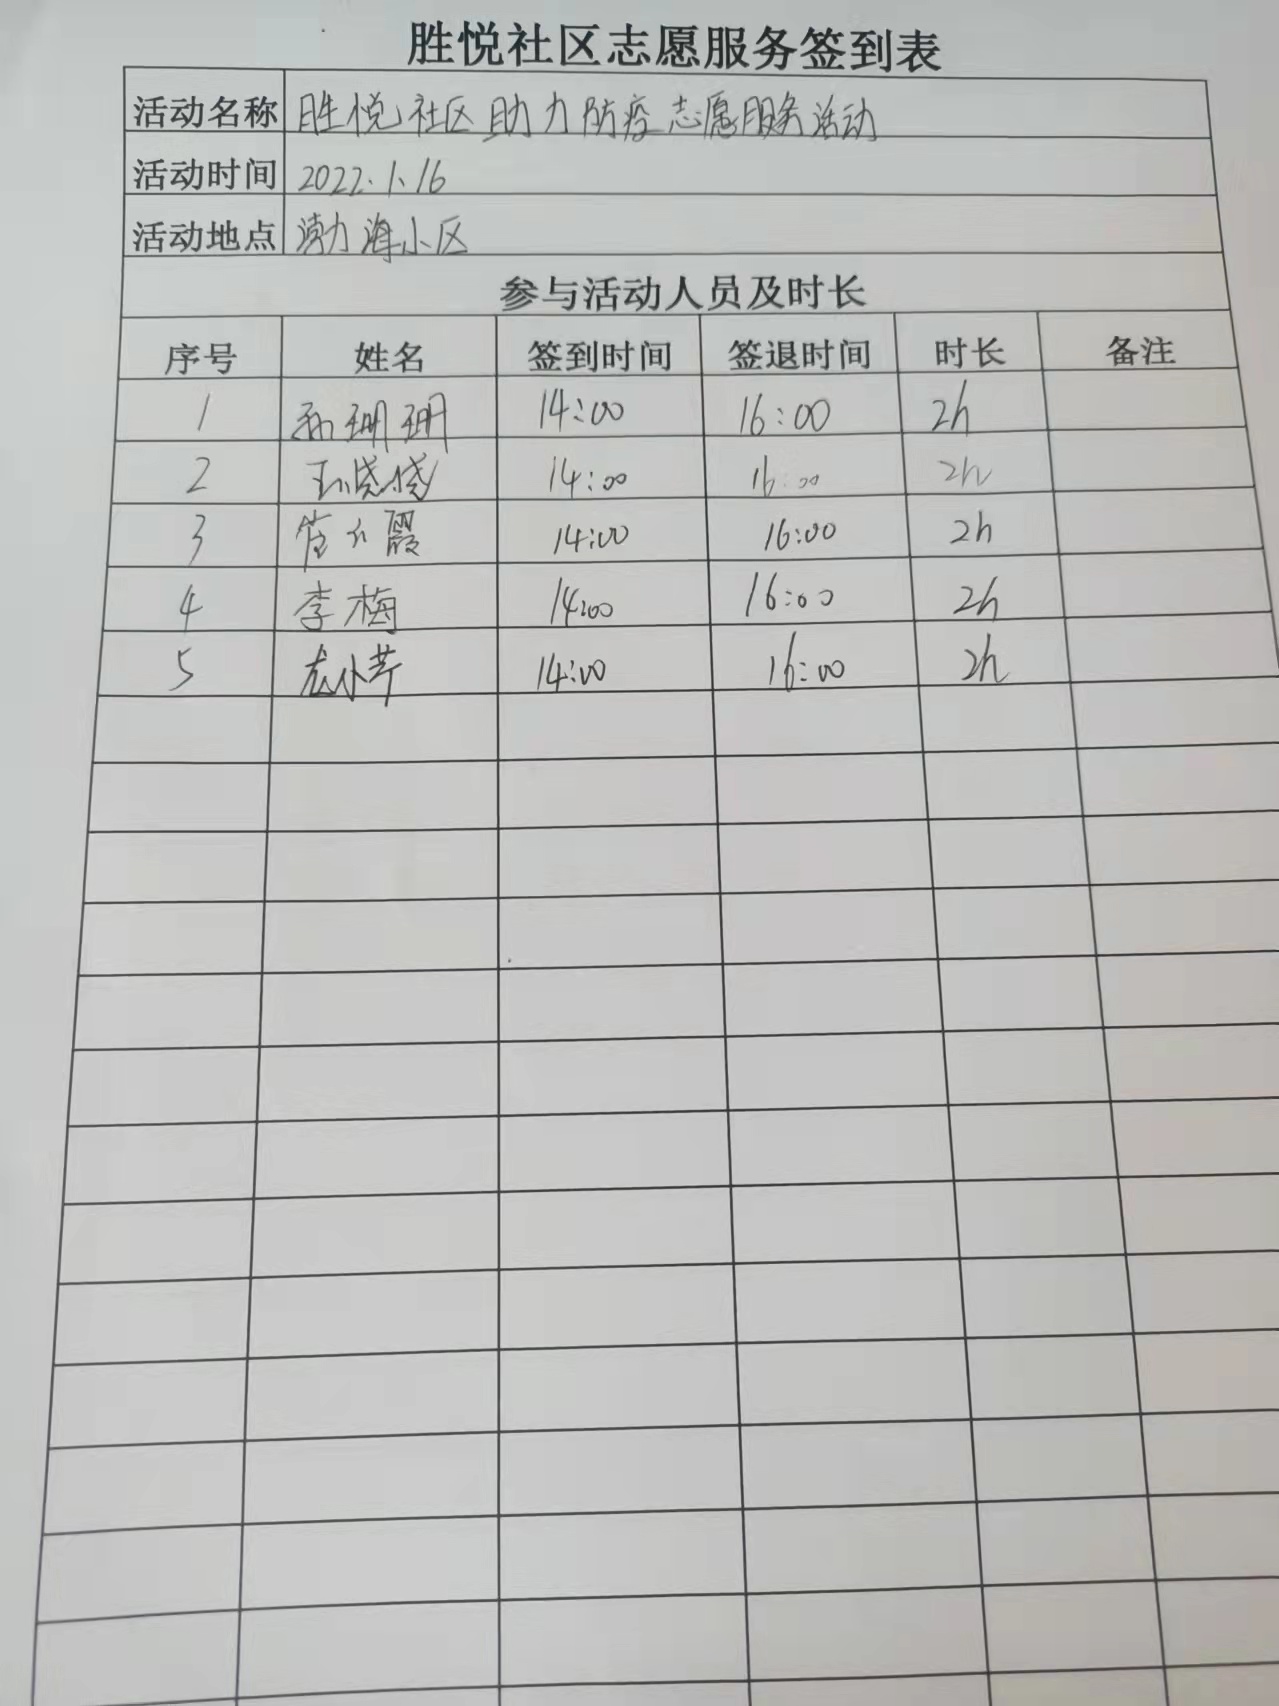 胜悦社区志愿服务签到表
活动名称 胜悦社区助力防疫志愿服务活动
活动时间 2022.1.16
活动地点 渤海小区
参与活动人员及时长
序号 姓名 签到时间 签退时间 时长 备注
1 孙珊珊 14:00 16:00 2h
2 14:00 16:00 2h
3 14:00 16:00 2h
4 李梅 14:00 16:00 2h
5 14:00 16:00 2h